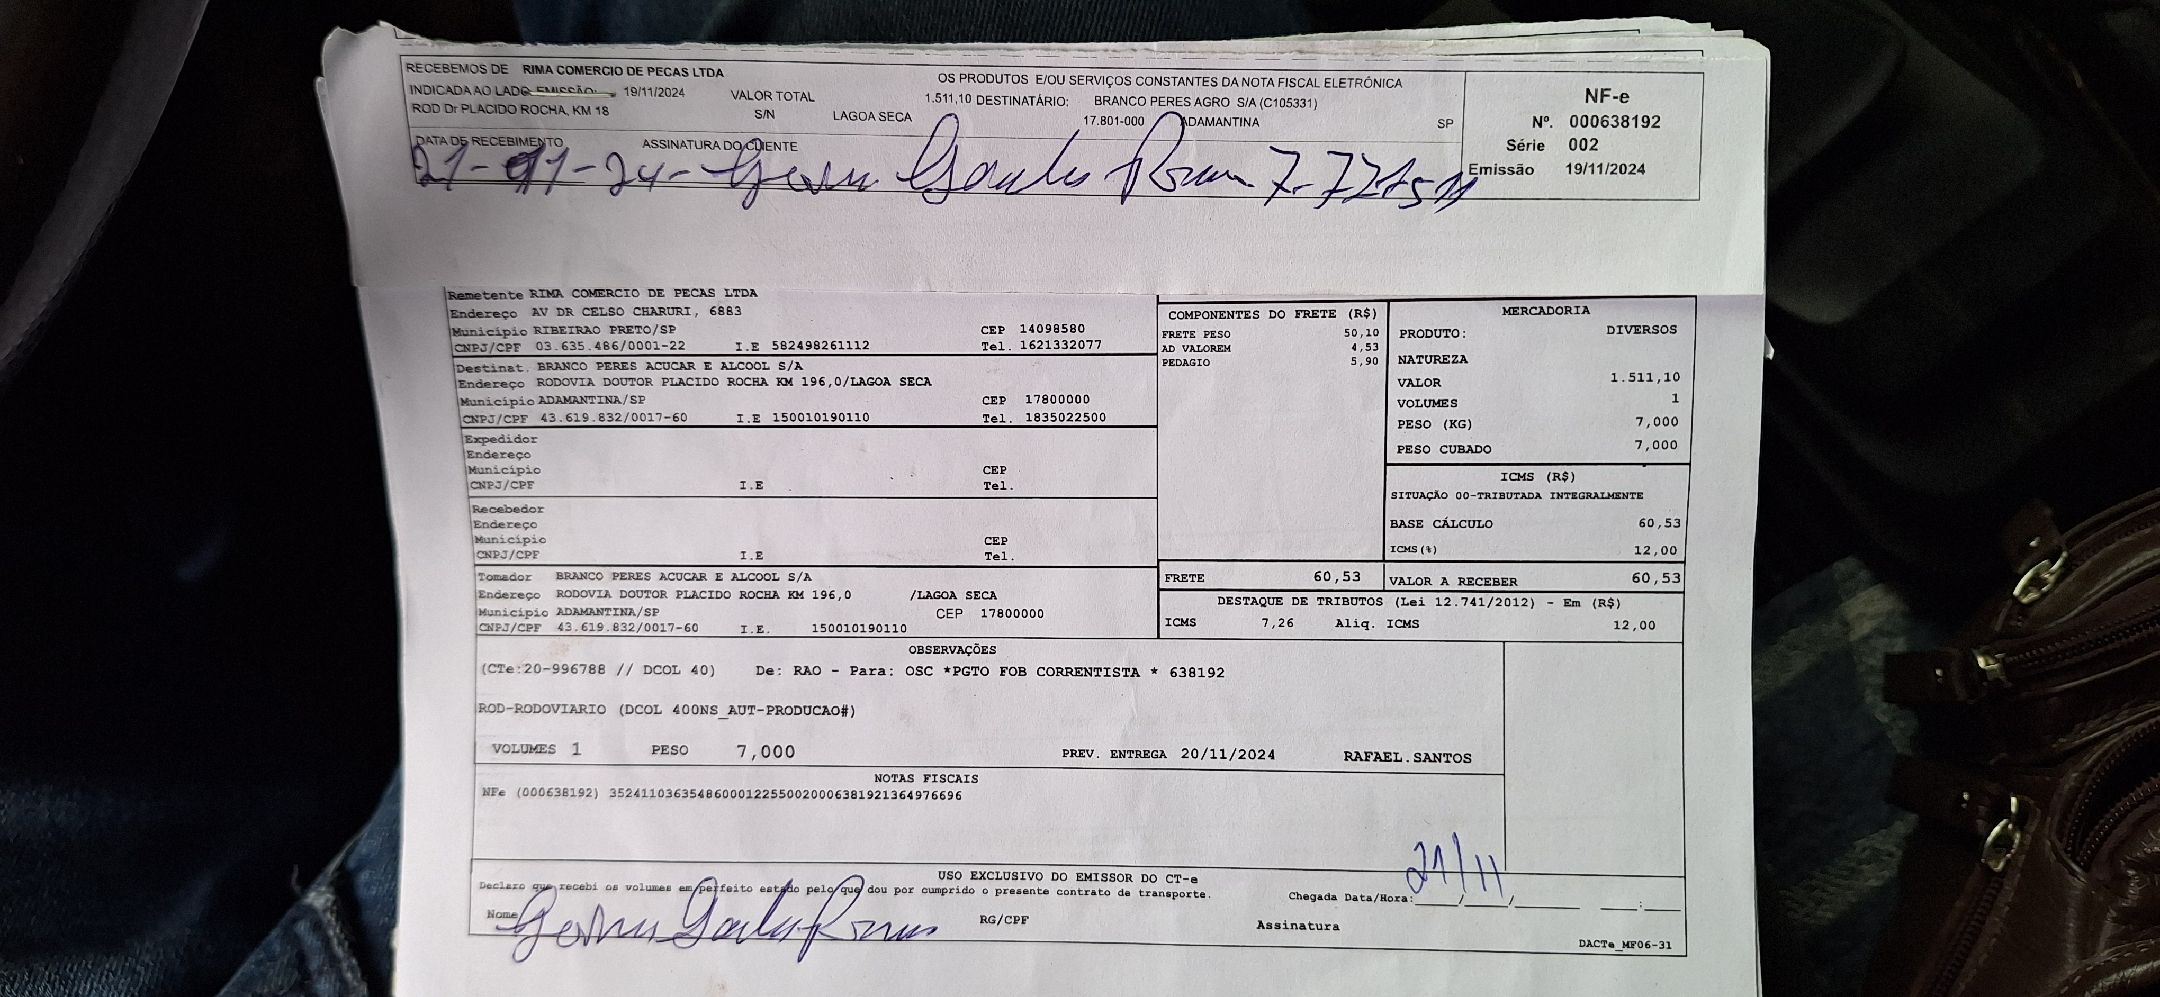 RECEBEMOS DE RIMA COMERCIO DE PECAS LTDA OS PRODUTOS E/OU SERVIÇOS CONSTANTES DA NOTA FISCAL ELETRÔNICA
INDICADA AO LADO EMISSÃO: 19/11/2024 VALOR TOTAL 1.511,10 DESTINATÁRIO: BRANCO PERES AGRO S/A (C105331)
ROD Dr PLACIDO ROCHA, KM 18 S/N LAGOA SECA 17.801-000 ADAMANTINA SP
DATA DE RECEBIMENTO ASSINATURA DO CLIENTE
21-11-24-
NF-e
Nº. 000638192
Série 002
Emissão 19/11/2024
Remetente RIMA COMERCIO DE PECAS LTDA
Endereço AV DR CELSO CHARURI, 6883
Município RIBEIRAO PRETO/SP CEP 14098580
CNPJ/CPF 03.635.486/0001-22 I.E 582498261112 Tel. 1621332077
Destinat. BRANCO PERES ACUCAR E ALCOOL S/A
Endereço RODOVIA DOUTOR PLACIDO ROCHA KM 196,0/LAGOA SECA
Município ADAMANTINA/SP CEP 17800000
CNPJ/CPF 43.619.832/0017-60 I.E 150010190110 Tel. 1835022500
Expedidor
Endereço
Município CEP
CNPJ/CPF I.E Tel.
Recebedor
Endereço
Município CEP
CNPJ/CPF I.E Tel.
Tomador BRANCO PERES ACUCAR E ALCOOL S/A
Endereço RODOVIA DOUTOR PLACIDO ROCHA KM 196,0 /LAGOA SECA
Município ADAMANTINA/SP CEP 17800000
CNPJ/CPF 43.619.832/0017-60 I.E. 150010190110
COMPONENTES DO FRETE (R$)
FRETE PESO 50,10
AD VALOREM 4,53
PEDAGIO 5,90
MERCADORIA
PRODUTO: DIVERSOS
NATUREZA
VALOR 1.511,10
VOLUMES 1
PESO (KG) 7,000
PESO CUBADO 7,000
ICMS (R$)
SITUAÇÃO 00-TRIBUTADA INTEGRALMENTE
BASE CÁLCULO 60,53
ICMS(%) 12,00
FRETE 60,53 VALOR A RECEBER 60,53
DESTAQUE DE TRIBUTOS (Lei 12.741/2012) - Em (R$)
ICMS 7,26 Aliq. ICMS 12,00
OBSERVAÇÕES
(CTe:20-996788 // DCOL 40) De: RAO - Para: OSC *PGTO FOB CORRENTISTA * 638192
ROD-RODOVIARIO (DCOL 400NS_AUT-PRODUCAO#)
VOLUMES 1 PESO 7,000 PREV. ENTREGA 20/11/2024 RAFAEL.SANTOS
NOTAS FISCAIS
NFe (000638192) 35241103635486000122550020006381921364976696
USO EXCLUSIVO DO EMISSOR DO CT-e
Declaro que recebi os volumes em perfeito estado pelo que dou por cumprido o presente contrato de transporte.
Chegada Data/Hora: 21/11
Nome RG/CPF Assinatura
DACTe_MF06-31